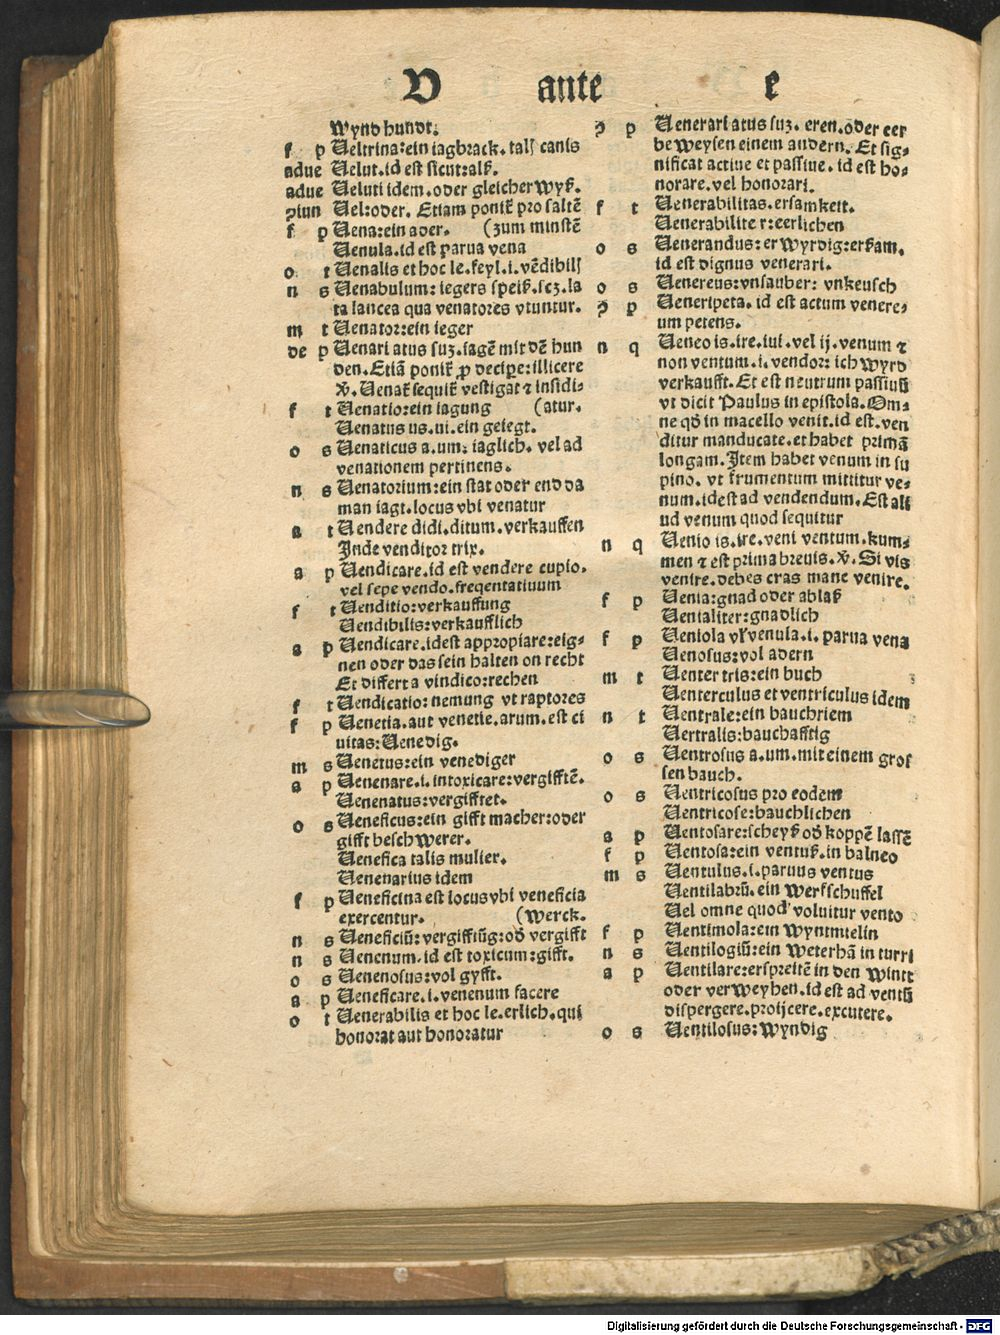 V ante e
Wynd hundt.
f p Veltrina:ein iagbrack. talꝭ canis
adue Velut.id est sicut:alß.
adue Veluti idem.oder gleicher wyß.
ꝯiun Vel:oder. Etiam ponit᷑ pro saltē
f p Vena:ein ader. (zum minstē
Venula.id est parua vena
o t Venalis et hoc le.feyl.i.vēdibilꝭ
n s Venabulum: iegers speiß.scz.la
ta lancea qua venatores vtuntur.
m t Venator:ein ieger
de p Venari atus suꝫ.iagē mit dē hun
den.Etiā ponit᷑ ꝓ decipe:illicere
ꝟ. Venat᷑ sequit᷑ vestigat ⁊ insidi-
f t Venatio:ein iagung (atur.
Venatus us.ui.ein geiegt.
o s Venaticus a.um: iaglich. vel ad
venationem pertinens.
n s Venatorium:ein stat oder end da
man iagt.locus vbi venatur
a t Vendere didi.ditum.verkauffen
Inde venditor trix.
a p Vendicare.id est vendere cupio.
vel sepe vendo.freqentatiuum
f t Venditio:verkauffung
Vendibilis:verkaufflich
a p Vendicare.idest appropiare:eig-
nen oder das sein halten on recht
Et differt a vindico:rechen
f t Vendicatio: nemung vt raptores
f p Venetia.aut venetie.arum.est ci
uitas:Venedig.
m s Venetus:ein venediger
a p Venenare.i.intoxicare:vergifftē.
Venenatus:vergifftet.
o s Veneficus:ein gifft macher:oder
gifft beschwerer.
Venefica talis mulier.
Venenarius idem
f p Veneficina est locus vbi veneficia
exercentur. (Werck.
n s Veneficiū: vergifftūg:od᷑ vergifft
n s Venenum.id est toxicum:gifft.
o s Venenosus:vol gyfft.
a p Veneficare.i.venenum facere
o t Venerabilis et hoc le.erlich.qui
honorat aut honoratur
ꝯ p Venerari atus suꝫ. eren.oder eer
beweysen einem andern. Et sig-
nificat actiue et passiue. id est ho-
norare.vel honorari.
f t Venerabilitas.ersamkeit.
Venerabilite r:eerlichen
o s Venerandus: erwyrdig:erßam.
id est dignus venerari.
o s Venereus:vnsauber: vnkeusch
ꝯ p Veneripeta. id est actum venere-
um petens.
n q Veneo is.ire.iui.vel ij.venum ⁊
non ventum.i.vendor: ich wyrd
verkaufft.Et est neutrum passiuū
vt dicit Paulus in epistola. Om-
ne qd᷑ in macello venit.id est.ven
ditur manducate.et habet primā
longam.Item habet venum in su
pino. vt frumentum mittitur ve-
num.idest ad vendendum.Est ali
ud venum quod sequitur
n q Venio is.ire.veni ventum.kum-
men ⁊ est prima breuis.ꝟ. Si vis
venire.debes cras mane venire.
f p Venia:gnad oder ablaß
Venialiter:gnadlich
f p Veniola vel venula.i.parua vena
Venosus:vol adern
m t Venter tris:ein buch
Venterculus et ventriculus idem
n t Ventrale:ein bauchriem
Vertralis:bauchafftig
o s Ventrosus a.um.mit einem gros
sen bauch.
o s Ventricosus pro eodem
Ventricose:bauchlichen
a p Ventosare:scheyß od᷑ koppē lassē
f p Ventosa:ein ventuß.in balneo
m s Ventulus.i.paruus ventus
Ventilabrū.ein werfschuffel
Vel omne quod voluitur vento
f p Ventimola:ein wyntmielin
n s Ventilogiū:ein weterhā in turri
a p Ventilare:erspreitē in den wint
oder verweyhen.id est ad ventū
dispergere.proijcere.excutere.
o s Ventilosus:wyndig
Digitalisierung gefördert durch die Deutsche Forschungsgemeinschaft - DFG